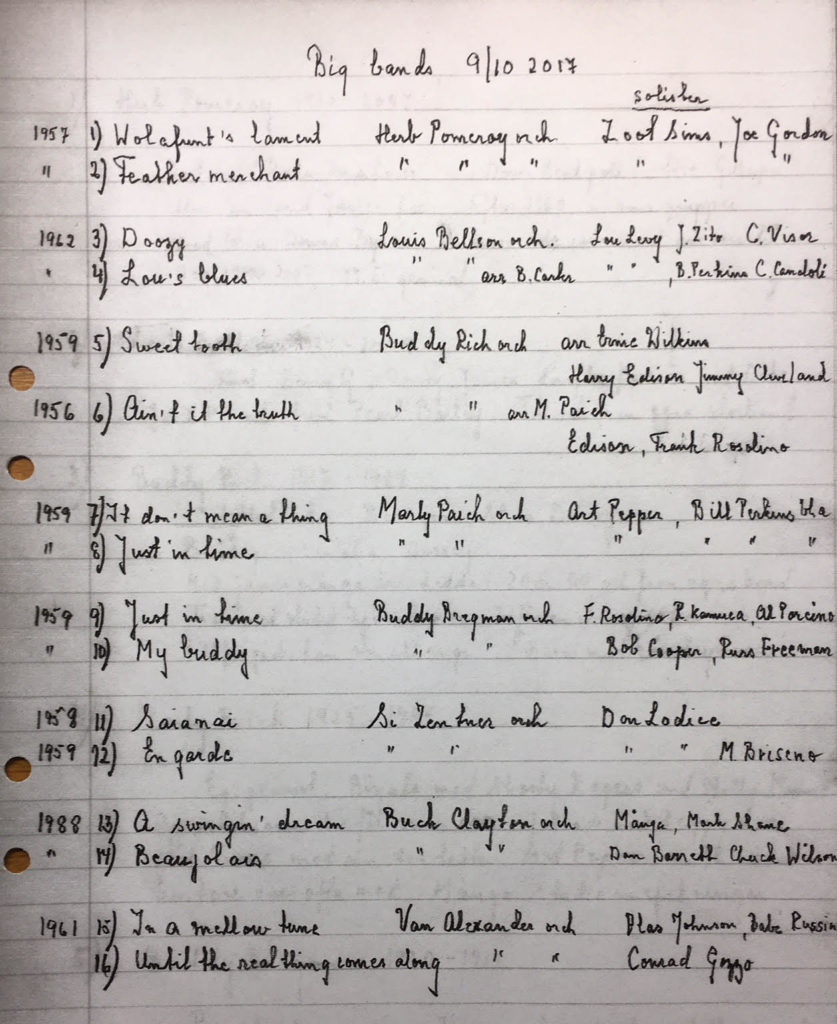 Big bands 9/10 2017
solister
1957 1) Wolafunt's lament Herb Pomeroy orch Zoot Sims, Joe Gordon
" 2) Feather merchant " " " " "
1962 3) Doozy Louis Bellson orch. Lou Levy J. Zito C. Visor
" 4) Lou's blues " " arr B. Carter " " , B. Perkins C. Candoli
1959 5) Sweet tooth Buddy Rich orch arr Ernie Wilkins
Harry Edison Jimmy Cleveland
1956 6) Ain't it the truth " " arr M. Paich
Edison, Frank Rosolino
1959 7) It don't mean a thing Marty Paich orch Art Pepper, Bill Perkins bla
" 8) Just in time " " " " " "
1959 9) Just in time Buddy Bregman orch F. Rosolino, R. Kamuca, Al Porcino
" 10) My buddy " " Bob Cooper, Russ Freeman
1958 11) Saianai Si Zentner orch Don Lodice
1959 12) En garde " " " " M. Briseno
1988 13) A swingin' dream Buck Clayton orch Många, Mark Shane
" 14) Beaujolais " " Dan Barrett Chuck Wilson
1961 15) In a mellow tune Van Alexander orch Plas Johnson, Babe Russin
16) Until the real thing comes along " " Conrad Gozzo